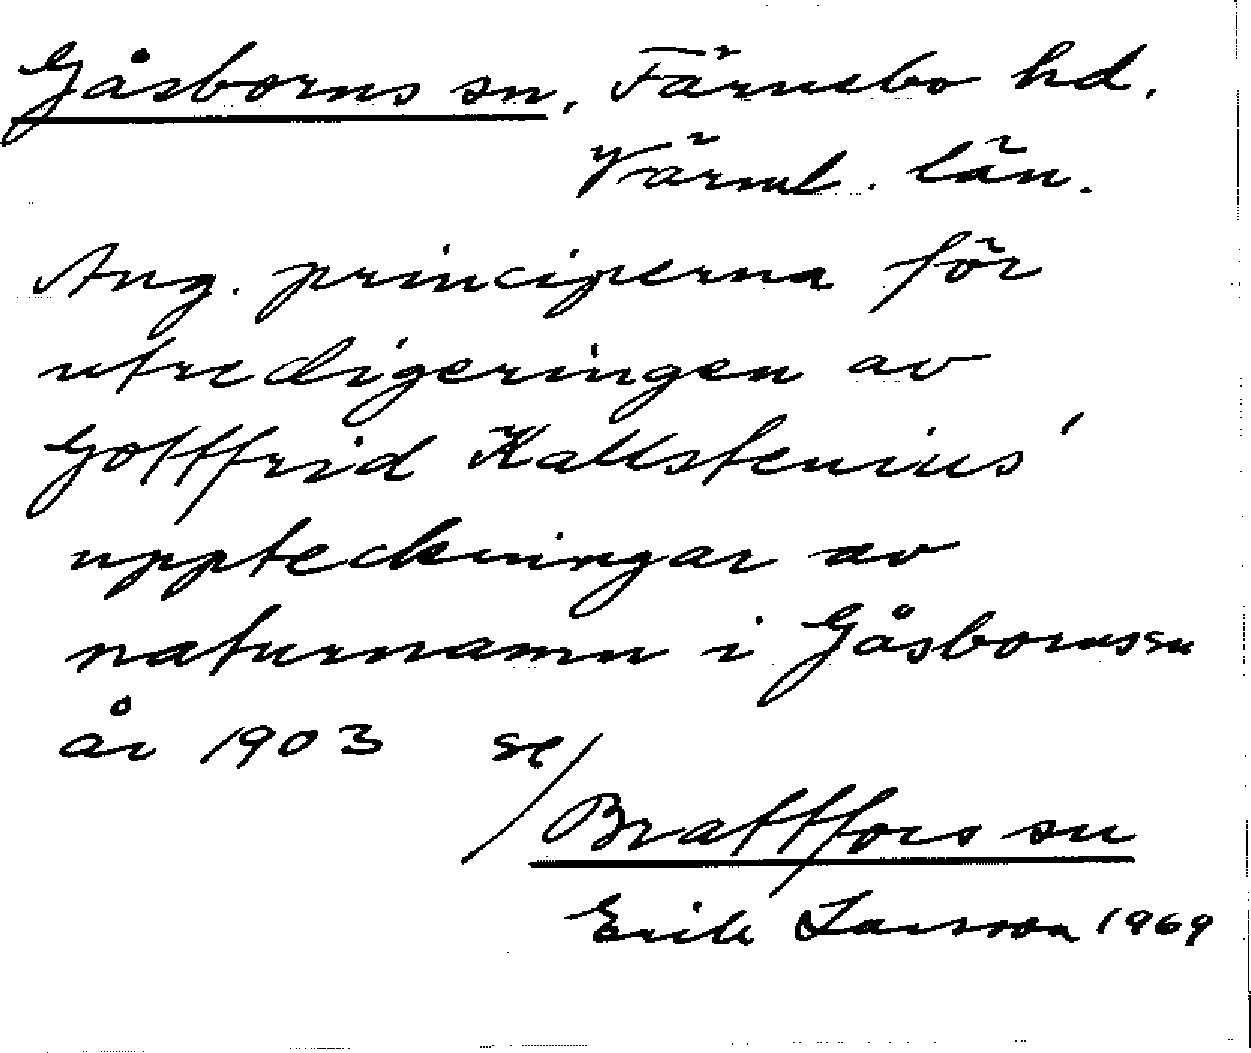 Gåsborns sn, Färnebo hd.
Värml. län.
Ang. principerna för
utredigeringen av
Gottfrid Kallstenius'
uppteckningar av
naturnamn i Gåsborns sn
år 1903 se/
Brattfors sn
Erik Larsson 1969